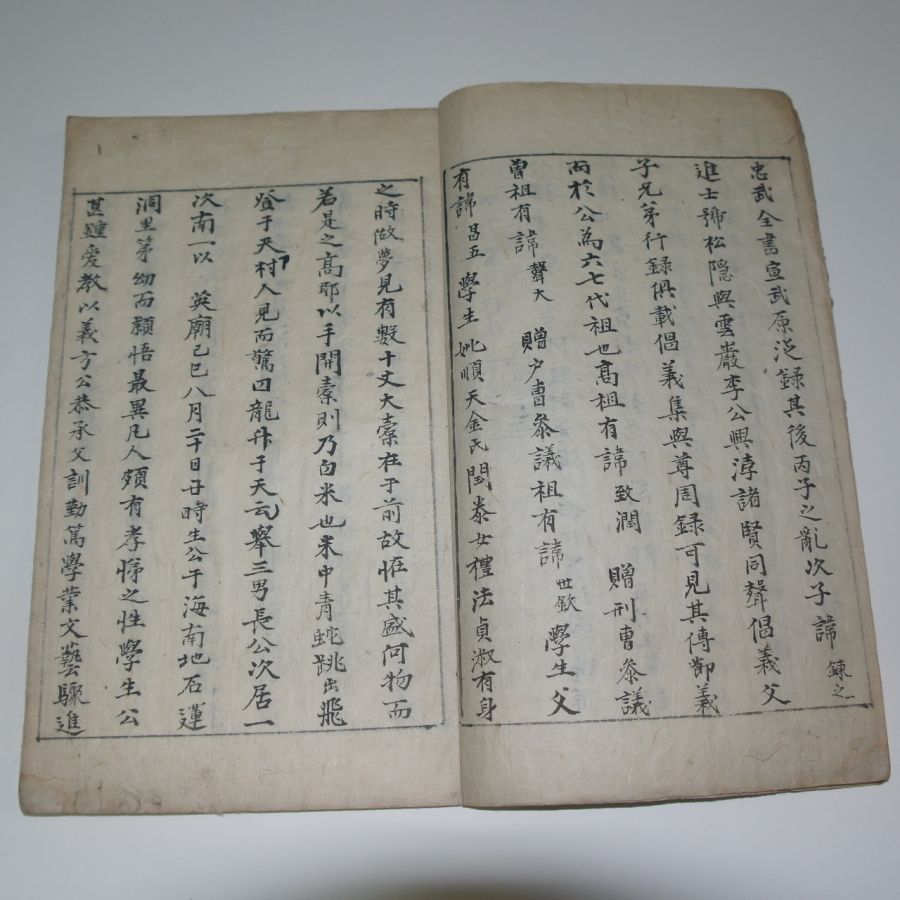 忠武全書宣武原從錄其後丙子之亂次子諱鍊之
進士號松隱與雲巖李公興浡諸賢同聲倡義父
子兄弟行錄俱載倡義集與尊周錄可見其傳節義
而於公為六七代祖也高祖有諱致潤 贈刑曹叅議
曾祖有諱聲大 贈戶曹叅議祖有諱世欽學生父
有諱昌五學生妣順天金氏閏泰女禮法貞淑有身
之時做夢見有數十丈大橐在于前故恠其盛何物而
若是之高耶以手開橐則乃白米也米中青蛇跳出飛
登于天村人見而驚曰龍升于天云舉三男長公次居一
次南一以 英廟己巳八月二十日子時生公于海南地石運
洞里第幼而穎悟最異凡人頗有孝悌之性學生公
甚鍾愛教以義方公恭承父訓勤篤學業文藝驟進